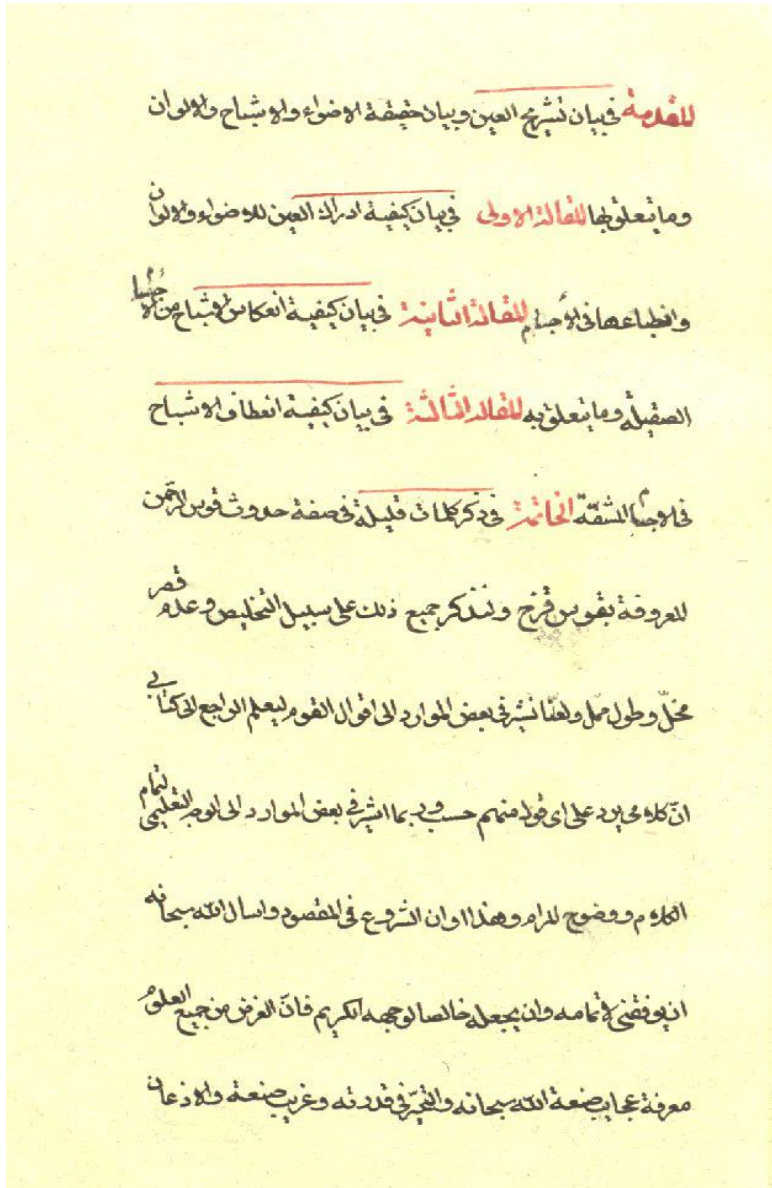 المقدمة في بيان تشريح العين وبيان حقيقة الاضواء والاشباح والالوان
وما يتعلق بها المقالة الاولى في بيان كيفية ادراك العين للاضواء والالوان
وانطباعها في الاجسام المقالة الثانية في بيان كيفية انعكاس الاشباح من الاجسام
الصقيلة وما يتعلق به المقالة الثالثة في بيان كيفية انعطاف الاشباح
في الاجسام المشفّة الخاتمة في ذكر كلمات قليلة في صفة حدوث قوس الرحمن
المعروفة بقوس قزح ونذكر جميع ذلك على سبيل التخليص وعدم قصر
مخلّ وطول مملّ ولعلّنا نشير في بعض الموارد الى اقوال القوم ليعلم الراجع الى كتابي
انّ كلامي يرد على اي قول منهم حسب وربما اشير في بعض الموارد الى الوجه التعليمي لتمام
الكلام ووضوح المرام وهذا اوان الشروع في المقصود واسال الله سبحانه
ان يوفقني لاتمامه وان يجعله خالصا لوجهه الكريم فانّ الغرض من جميع العلوم
معرفة عجايب صنعة الله سبحانه والتحيّر في قدرته وغريب صنعة والاذعان